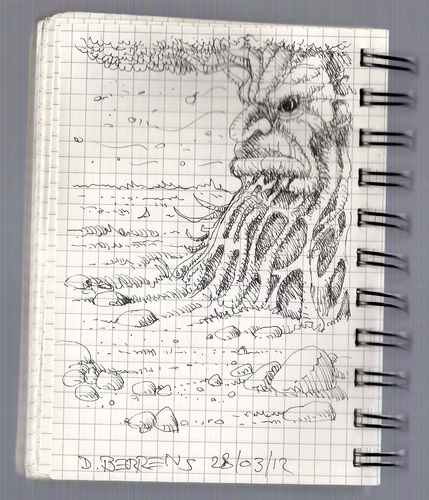 D. BERRENS 28/03/12